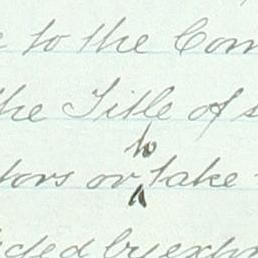 to the Com
the Title of
to
tors or take
ded by expr